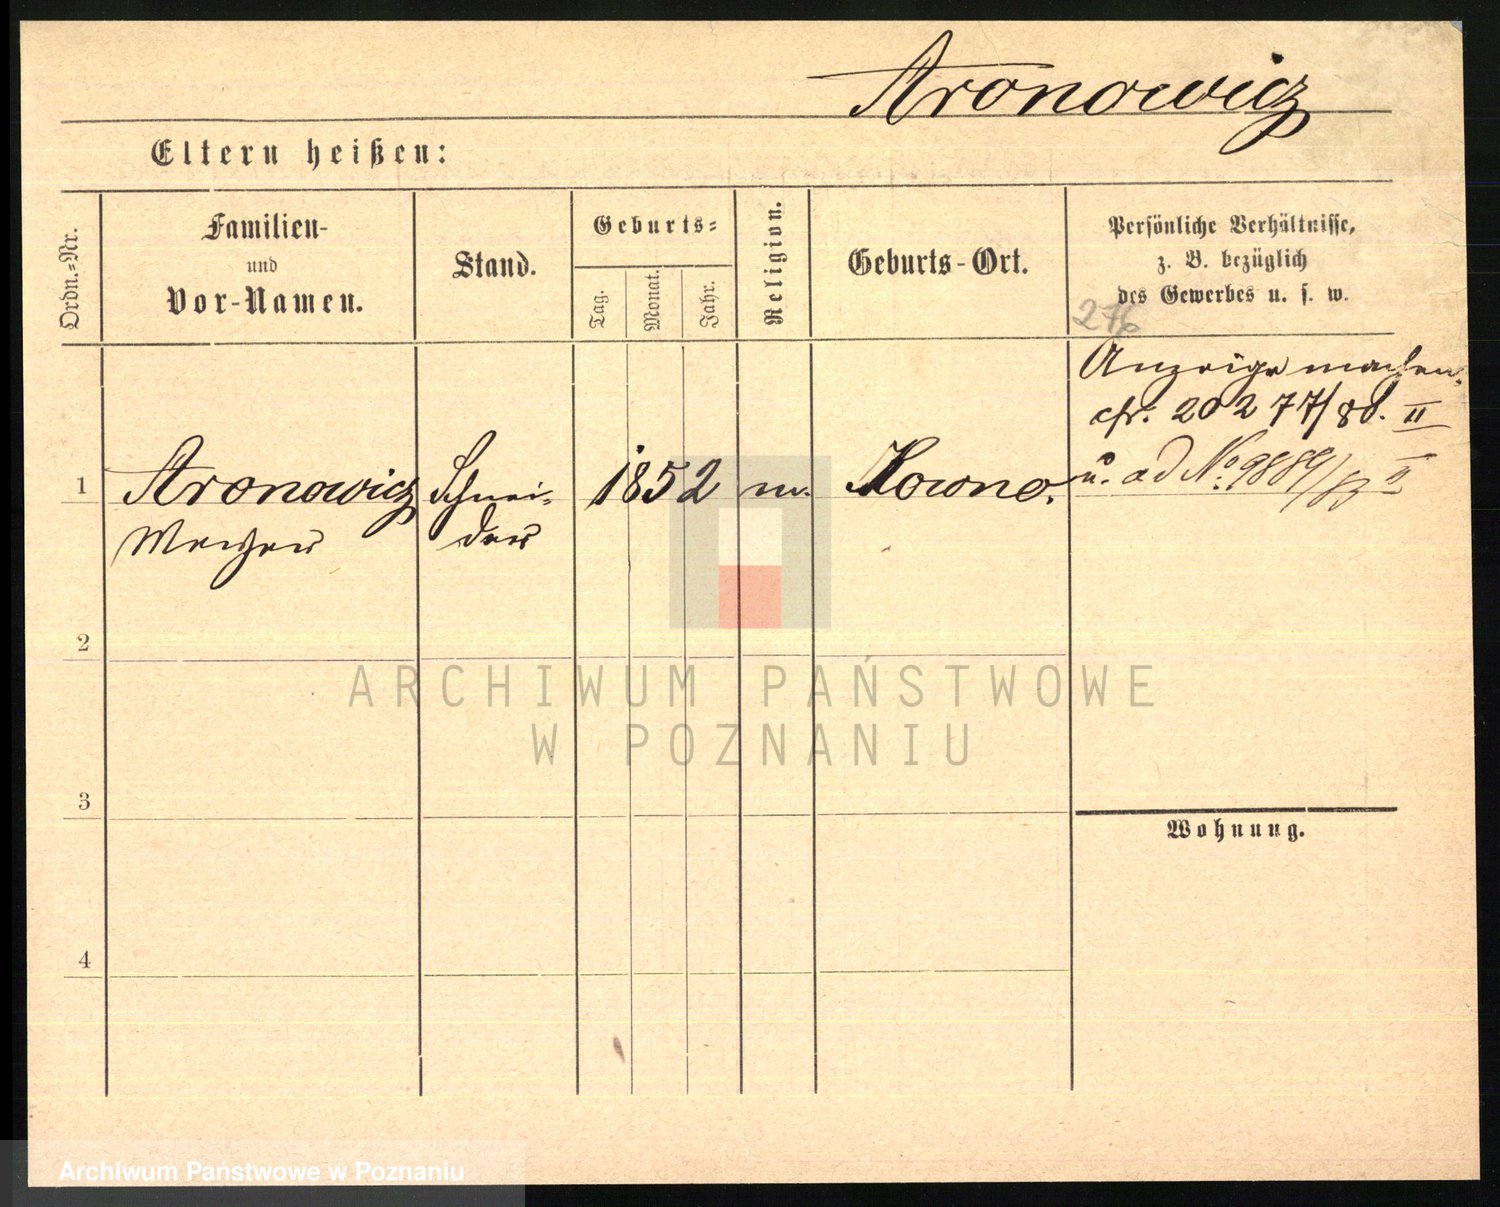 Aronowicz
Eltern heißen:
Ordn.=Nr.
Familien-
und
Vor-Namen.
Stand.
Geburts=
Tag.
Monat.
Jahr.
Religion.
Geburts-Ort.
Persönliche Verhältnisse,
z. B. bezüglich
des Gewerbes u. s. w.
276
Anzeige machen.
cfr. 20277/80. II
1 Aronowicz Schnei- 1852 m. Kowno. u. ad No. 9889/83 II
der
2
3
4
Wohnung.
ARCHIWUM PAŃSTWOWE
W POZNANIU
Archiwum Państwowe w Poznaniu